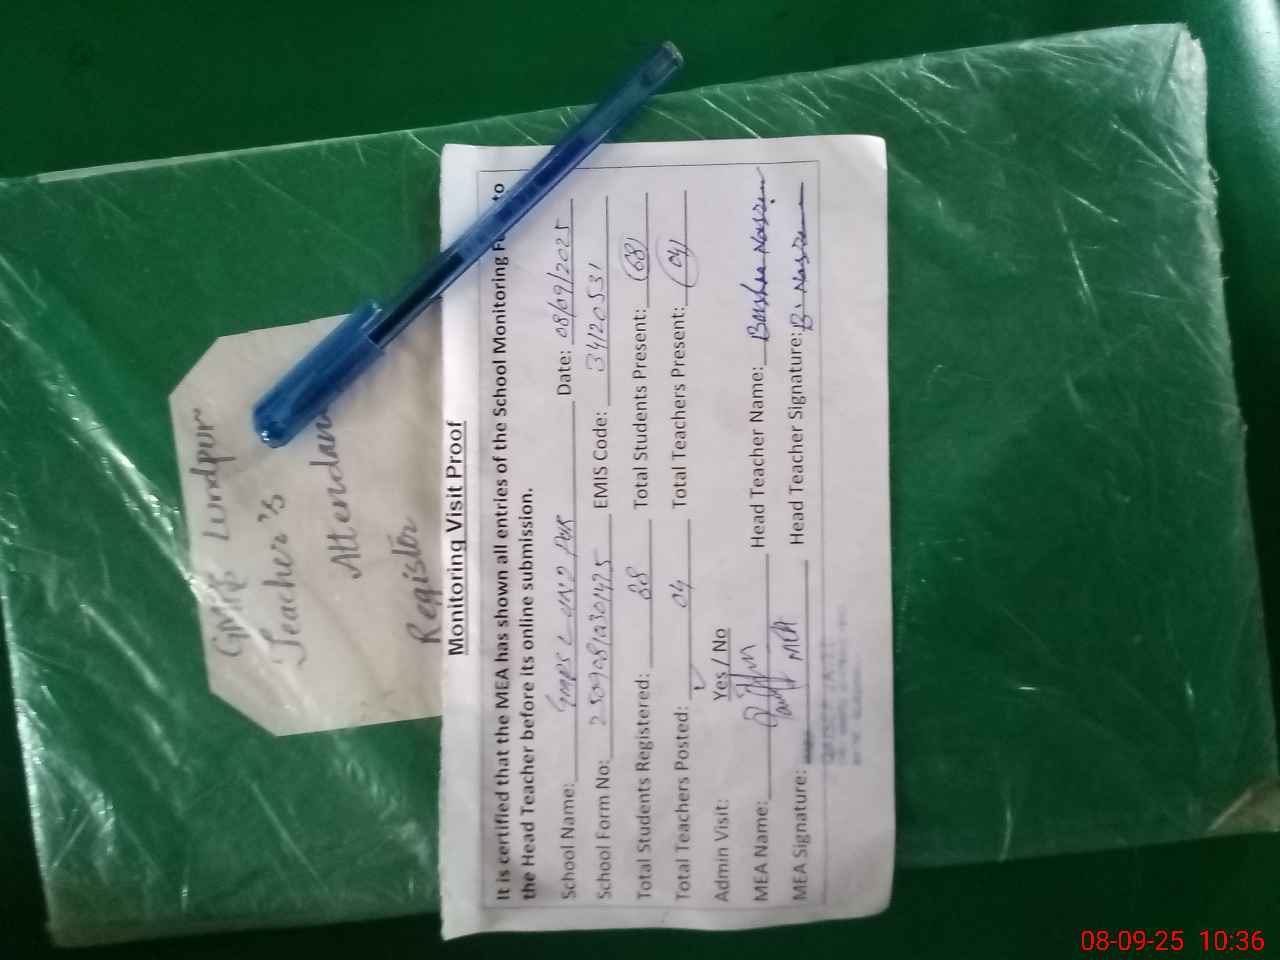 GMPS Lundpur
Teacher's
Attendan
Register
Monitoring Visit Proof
It is certified that the MEA has shown all entries of the School Monitoring F to
the Head Teacher before its online submission.
School Name: GMPS LUND PUR Date: 08/09/2025
School Form No: EMIS Code: 34120531
Total Students Registered: 88 Total Students Present: (68)
Total Teachers Posted: 04 Total Teachers Present: (04)
Admin Visit: Yes / No
MEA Name: Head Teacher Name: Bushra Nasreen
MEA Signature: MEA Head Teacher Signature: B. Nasreen
08-09-25 10:36